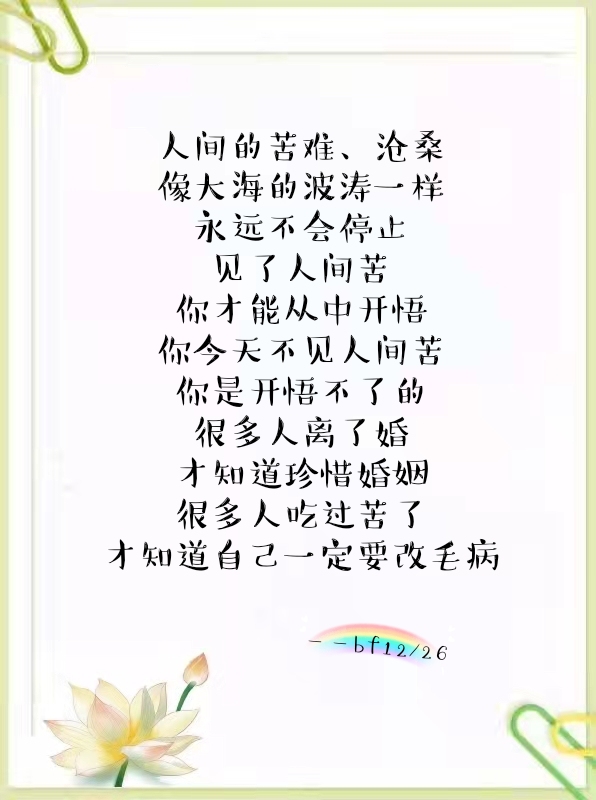 人间的苦难、沧桑
像大海的波涛一样
永远不会停止
见了人间苦
你才能从中开悟
你今天不见人间苦
你是开悟不了的
很多人离了婚
才知道珍惜婚姻
很多人吃过苦了
才知道自己一定要改毛病
--bf12/26